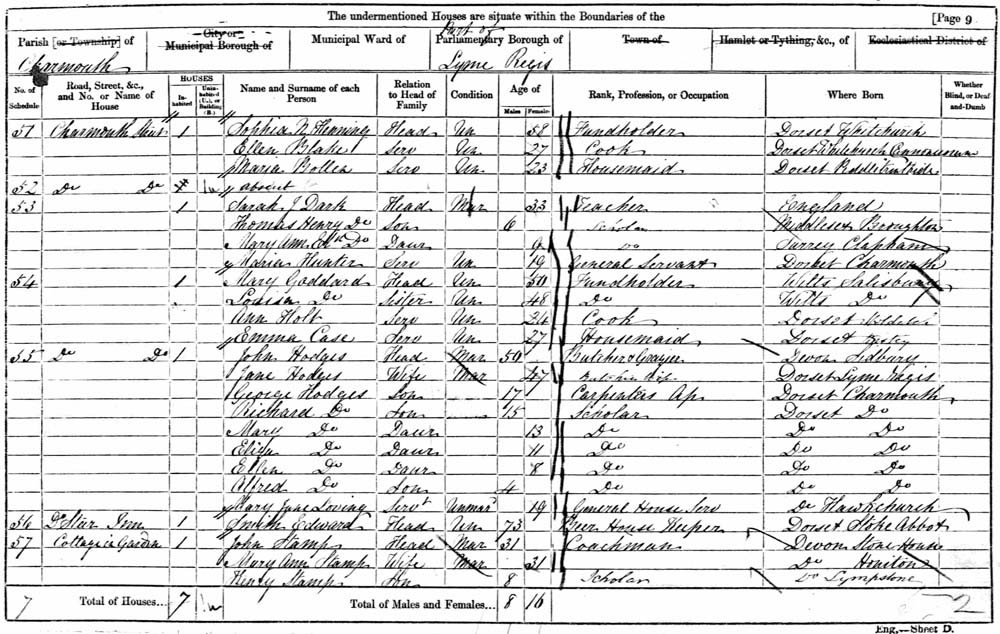 The undermentioned Houses are situate within the Boundaries of the [Page 9
Parish [or Township] of Charmouth
City or Municipal Borough of
Municipal Ward of
Part of Parliamentary Borough of Lyme Regis
Town of
Hamlet or Tything, &c., of
Ecclesiastical District of
No. of Schedule Road, Street, &c., and No. or Name of House HOUSES Inhabited Uninhabited (U.), or Building (B.) Name and Surname of each Person Relation to Head of Family Condition Age of Males Females Rank, Profession, or Occupation Where Born Whether Blind, or Deaf-and-Dumb
51 Charmouth Street 1 Sophia N Henning Head Un 58 Fundholder Dorset Whitchurch
Ellen Blake Serv Un 27 Cook Dorset Whitchurch
Maria Bollen Serv Un 23 Housemaid Dorset
52 Do Do absent
53 1 Sarah J Dark Head Mar 33 Teacher England
Thomas Henry Do Son 6 Scholar Middlesex Broughton
Mary Ann Do Daur 9 Do Surrey Clapham
Maria Hunter Serv Un 19 General Servant Dorset Charmouth
54 1 Mary Goddard Head Un 50 Fundholder Wilts Salisbury
Louisa Do Sister Un 48 Do Wilts Do
Ann Holt Serv Un 24 Cook Dorset
Emma Case Serv Un 27 Housemaid Dorset
55 Do Do 1 John Hodges Head Mar 50 Butcher & Grazier Devon Sidbury
Jane Hodges Wife Mar 47 Butchers Wife Dorset Lyme Regis
George Hodges Son 17 Carpenters Ap Dorset Charmouth
Richard Do Son 15 Scholar Dorset Do
Mary Do Daur 13 Do Do Do
Eliza Do Daur 11 Do Do Do
Ellen Do Daur 8 Do Do Do
Alfred Do Son 4 Do Do Do
Mary Jane Loving Servt Unmar 19 General House Serv Do Hawkchurch
56 Do Star Inn 1 Smith Edward Head Un 73 Beer House Keeper Dorset Stoke Abbot
57 Cottage in Garden 1 John Stamp Head Mar 31 Coachman Devon Stone House
Mary Ann Stamp Wife Mar 31 Do Honiton
Henry Stamp Son 8 Scholar Do Lympstone
7 Total of Houses... 7 Total of Males and Females... 8 16
2
Eng.—Sheet D.